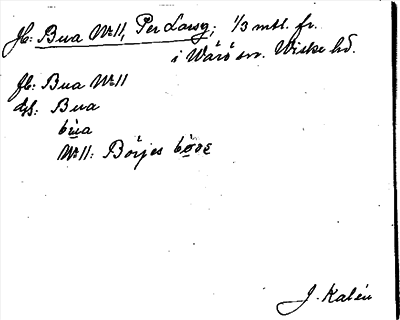 Jb: Bua Nr 11, Per Larsg; 1/3 mtl. fr.
i Wärö sn. Wiske hd.
Jb: Bua Nr 11
Us: Bua
bùa
Nr 11: Börjes
J. Kalén